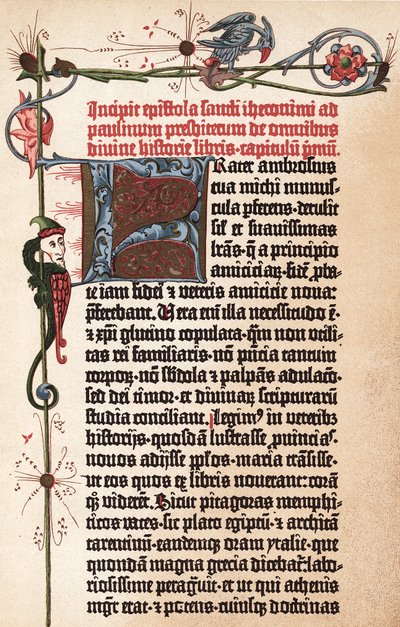 Incipit epistola sancti iheronimi ad
paulinum presbiterum de omnibus
divine historie libris. capitulū pmū.
FRater ambrosius
tua michi munus-
cula pferens. detulit
sił et suavissimas
lrās. q̄ a principio
amiciciaꝝ. fidē pba-
te iam fidei ⁊ veteris amicicie nova:
pferebant. Vera enī illa necessitudo ē.
⁊ xpī glutino copulata. qm̄ non utili-
tas rei familiaris. nō pn̄tia tantum
corpoꝝ. nō sbdola ⁊ palpās adulacō.
sed dei timor. et divinaꝝ scripturarū
studia conciliant. Legimꝰ in veteribꝫ
historijs. quosdā lustrasse puincias.
novos adijsse pplos. maria trāsisse.
ut eos quos ex libris noverant: corā
qꝫ viderēt. Sicut pitagoras memphi-
ticos vates. sic plato egiptū. ⁊ architā
tarentinū. eandemqꝫ oram ytalie. que
quondā magna grecia dicebat̄: labo-
riosissime peragᵛit. et ut qui athenis
mgr̄ erat. ⁊ potens. cuiusqꝫ doctrinas